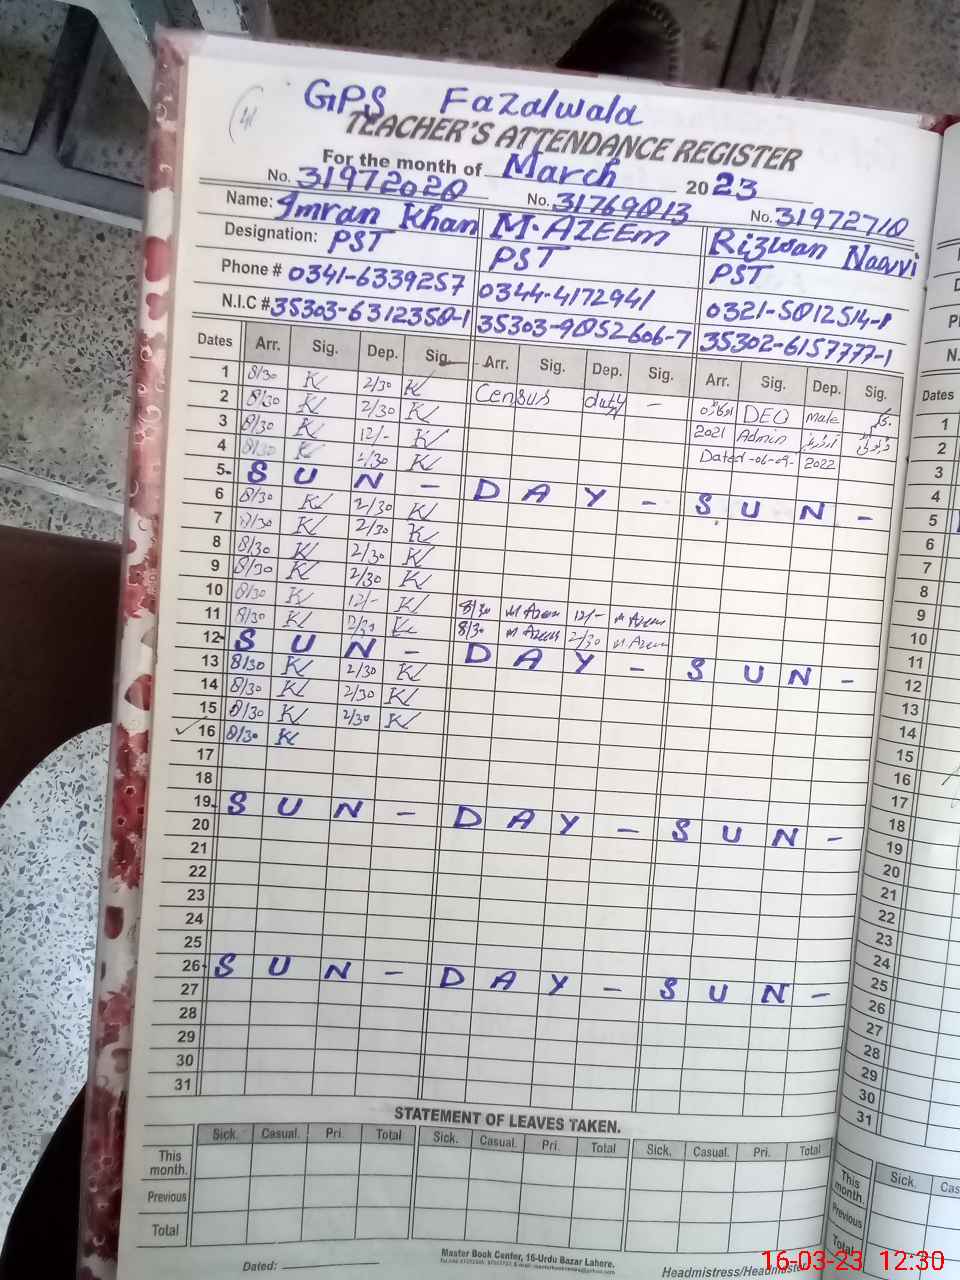 GPS Fazalwala
TEACHER'S ATTENDANCE REGISTER
For the month of March 2023
No. 31972020 No. 31769013 No. 31972710
Name: Imran Khan M. AZEEM Rizwan Naqvi
Designation: PST PST PST
Phone # 0341-6339257 0344-4172941 0321-5012514-8
N.I.C # 35303-6312350-1 35303-9052606-7 35302-6157777-1
Dates Arr. Sig. Dep. Sig. Arr. Sig. Dep. Sig. Arr. Sig. Dep. Sig. Dates
1 8/30 K 2/30 K Census duty - DEO Male 1
2 8/30 K 2/30 K 2021 Admin 2
3 8/30 K 12/- K Dated -06-09- 2022 3
4 8/30 K 2/30 K 4
5- S U N - D A Y - S U N - 5
6 8/30 K 2/30 K 6
7 8/30 K 2/30 K 7
8 8/30 K 2/30 K 8
9 8/30 K 2/30 K 9
10 8/30 K 12/- K 8/30 M Azeem 12/- M Azeem 10
11 8/30 K 2/30 K 8/30 M Azeem 2/30 M Azeem 11
12- S U N - D A Y - S U N - 12
13 8/30 K 2/30 K 13
14 8/30 K 2/30 K 14
15 8/30 K 2/30 K 15
16 8/30 K 16
17 17
18 18
19- S U N - D A Y - S U N - 19
20 20
21 21
22 22
23 23
24 24
25 25
26- S U N - D A Y - S U N - 26
27 27
28 28
29 29
30 30
31 31
STATEMENT OF LEAVES TAKEN.
Sick. Casual. Pri. Total Sick. Casual. Pri. Total Sick. Casual. Pri. Total Sick. Cas
This month. This month.
Previous Previous
Total Total
Dated: Master Book Center, 16-Urdu Bazar Lahore. Headmistress/Headmaster
16-03-23 12:30